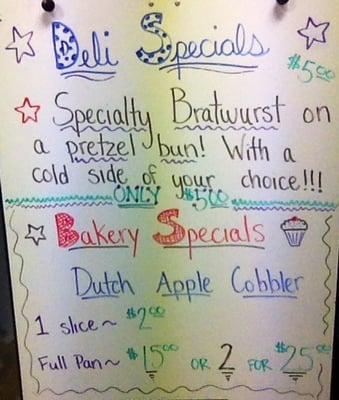 Deli Specials
$5.00
Specialty Bratwurst on
a pretzel bun! With a
cold side of your choice!!!
ONLY $5.00
Bakery Specials
Dutch Apple Cobbler
1 slice ~ $2.00
Full Pan ~ $15.00 OR 2 FOR $25.00